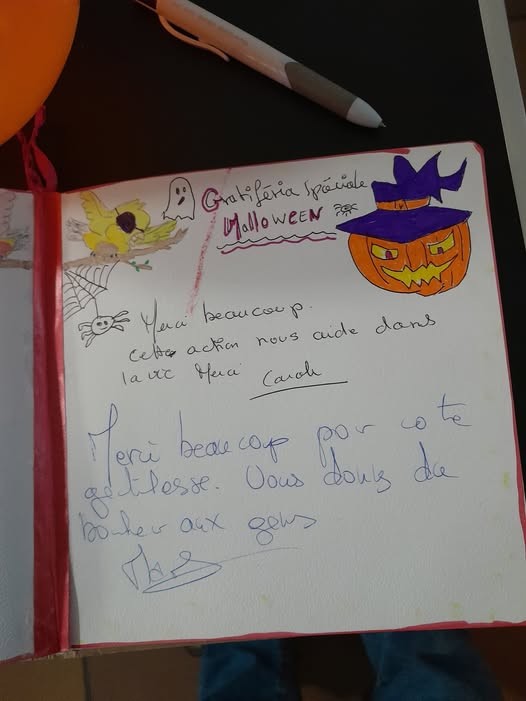 Gratiféria spéciale
Halloween
Merci beaucoup.
cette action nous aide dans
la vie Merci Carole
Merci beaucoup pour cote
getilesse. Vous donis du
bonheur aux gens